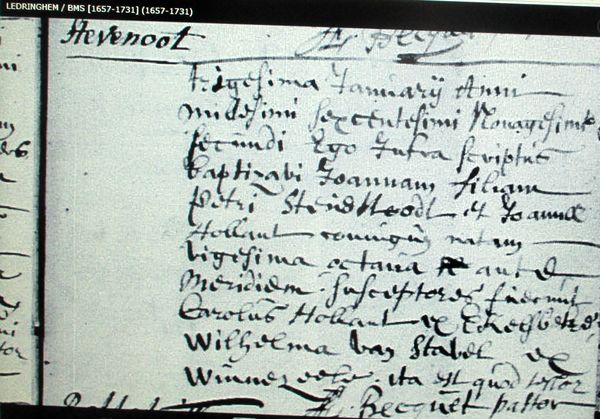 LEDRINGHEM / BMS [1657-1731] (1657-1731)
Stevenoot
trigesima Januarij Anni
millesimi sexcentesimi Nonagesimi
secundi Ego Infra scriptus
baptizavi Joannam filiam
Petri et Joannæ
Hollant coniugum natam
vigesima octava ante
Meridiem susceptores fuerunt
Carolus Hollant ex
Wilhelma van Stavel ex
Winnezeele ita est quod testor
Becquet pastor